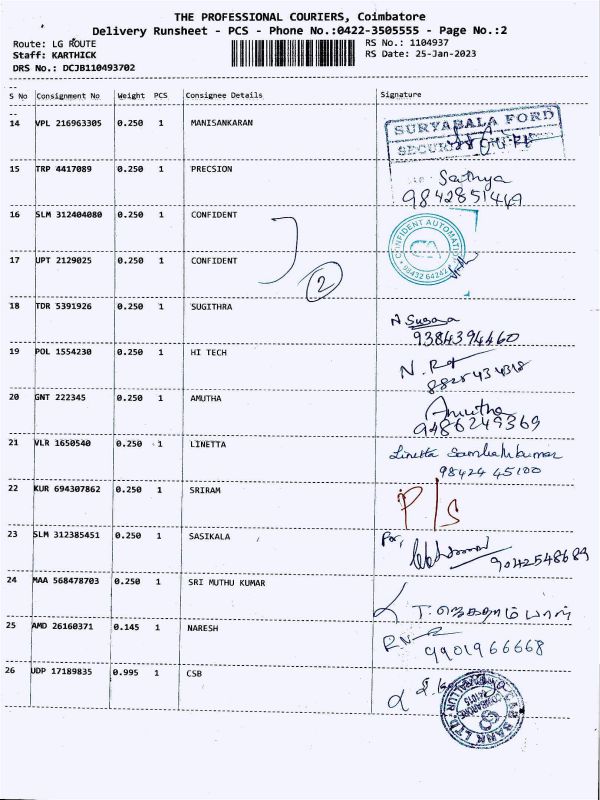 THE PROFESSIONAL COURIERS, Coimbatore
Delivery Runsheet - PCS - Phone No.:0422-3505555 - Page No.:2
Route: LG ROUTE RS No.: 1104937
Staff: KARTHICK RS Date: 25-Jan-2023
DRS No.: DCJB110493702
S No Consignment No Weight PCS Consignee Details Signature
14 VPL 216963305 0.250 1 MANISANKARAN
SURYABALA FORD
SECURITY
15 TRP 4417089 0.250 1 PRECSION
Sathya
9842851449
16 SLM 312404080 0.250 1 CONFIDENT
CONFIDENT AUTOMATION
CA
98432 64242
17 UPT 2129025 0.250 1 CONFIDENT
2
18 TDR 5391926 0.250 1 SUGITHRA
9384394460
19 POL 1554230 0.250 1 HI TECH
20 GNT 222345 0.250 1 AMUTHA
Amutha
9486249369
21 VLR 1650540 0.250 1 LINETTA
Linetta
98424 45100
22 KUR 694307862 0.250 1 SRIRAM
P/S
23 SLM 312385451 0.250 1 SASIKALA
For,
9042548689
24 MAA 568478703 0.250 1 SRI MUTHU KUMAR
25 AMD 26160371 0.145 1 NARESH
9901966668
26 UDP 17189835 0.995 1 CSB
BANK LTD